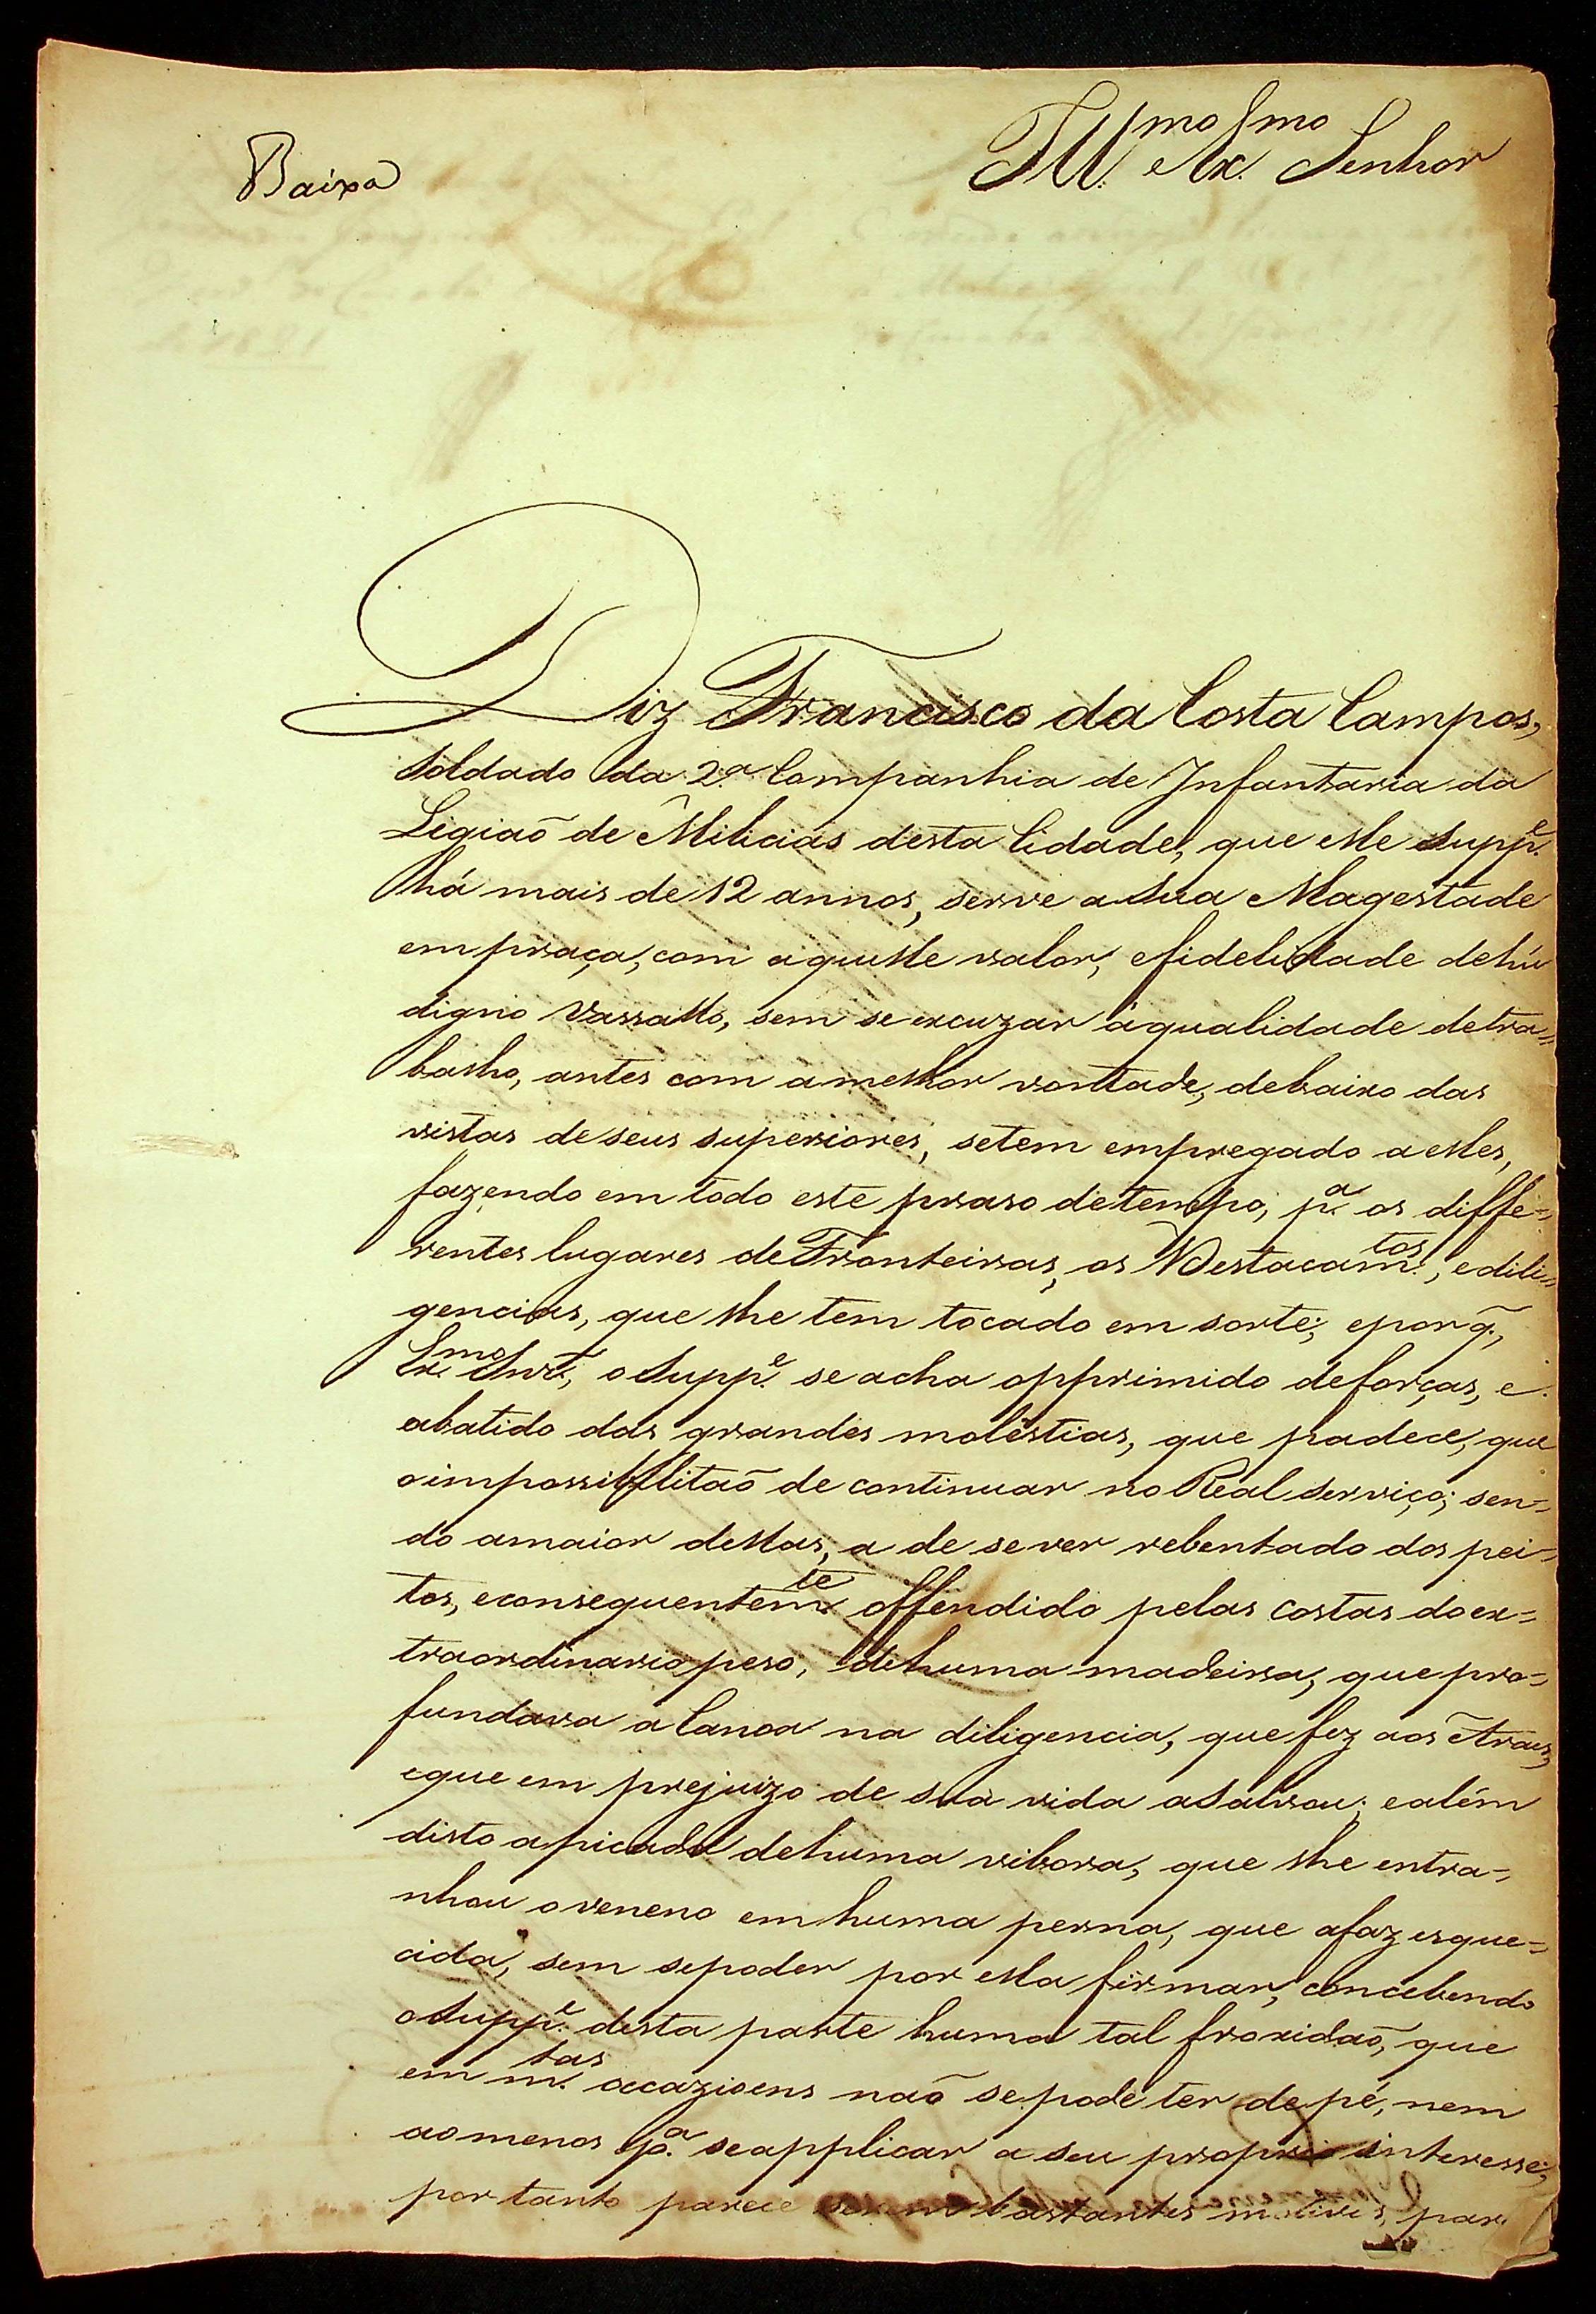 Ill.mo e Ex.mo Senhor
Baixa
Diz Francisco da Costa Campos,
Soldado da 2.a Companhia de Infantaria da
Ligiaõ de Milicias desta Cidade, que elle Supp.e
há mais de 12 annos, serve a Sua Magestade
em praça, com aquelle valor, e fidelidade de hũ
digno Vassallo, sem se excuzar à qualidade de tra=
balho, antes com a melhor vontade, debaixo das
vistas de seus superiores, se tem empregado a elles,
fazendo em todo este praso de tempo, p.a os diffe=
rentes lugares de Fronteiras, os Destacam.tos, e dili=
gencias, que lhe tem tocado em sorte; e por q̃,
Ex.mo Snr., o Supp.e se acha opprimido de forças, e
abatido das grandes moléstias, que padece, que
o impossibilitaõ de continuar no Real Serviço; sen=
do a maior dellas, a de se ver rebentado dos pei=
tos, e consequentem.te offendido pelas costas do ex=
traordinario peso, de huma madeira, que pro=
fundava a Canoa na diligencia, que fez aos
e que em prejuizo de sua vida a Salvou; e além
disto a picada de huma vibora, que lhe entra=
nhou o veneno em huma perna, que a faz esque=
cida, sem se poder por ella firmar, concebendo
o Supp.e desta parte huma tal froxidaõ, que
em m.tas occazioens naõ se pode ter de pé, nem
ao menos p.a se applicar a seu proprio interesse;
por tanto parece serem bastantes motivos, para